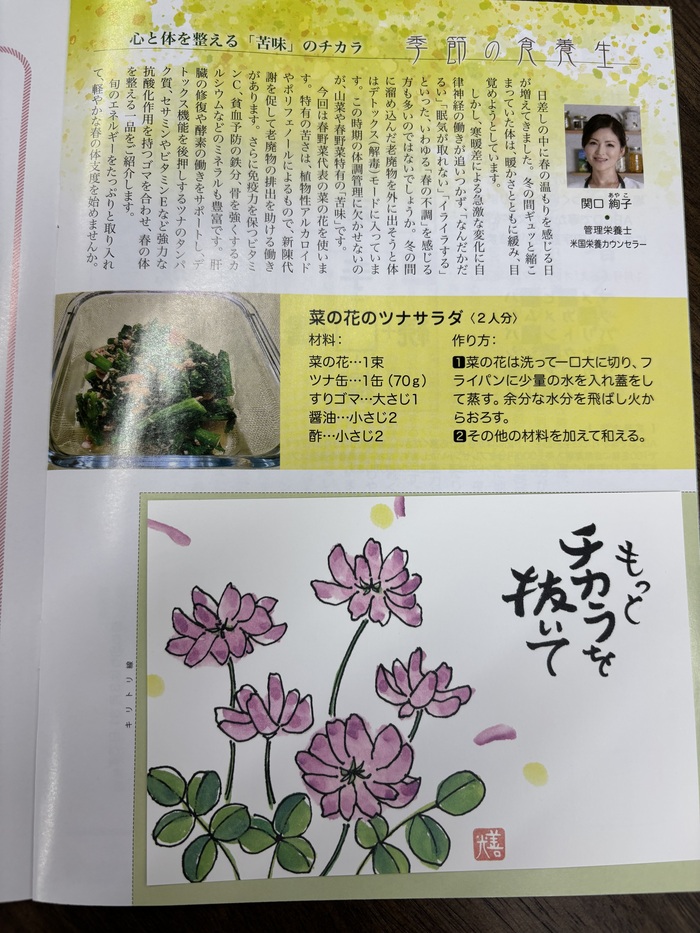 心と体を整える「苦味」のチカラ
季節の食養生
関口 絢子
あやこ
●
管理栄養士
米国栄養カウンセラー
日差しの中に春の温もりを感じる日
が増えてきました。冬の間ギュッと縮こ
まっていた体は、暖かさとともに緩み、目
覚めようとしています。
しかし、寒暖差による急激な変化に自
律神経の働きが追いつかず、「なんだかだ
るい」「眠気が取れない」「イライラする」
といった、いわゆる「春の不調」を感じる
方も多いのではないでしょうか。冬の間
に溜め込んだ老廃物を外に出そうと体
はデトックス（解毒）モードに入っていま
す。この時期の体調管理に欠かせないの
が、山菜や春野菜特有の「苦味」です。
今回は春野菜代表の菜の花を使いま
す。特有の苦さは、植物性アルカロイド
やポリフェノールによるもので、新陳代
謝を促して老廃物の排出を助ける働き
があります。さらに免疫力を保つビタミ
ンC、貧血予防の鉄分、骨を強くするカ
ルシウムなどのミネラルも豊富です。肝
臓の修復や酵素の働きをサポートし、デ
トックス機能を後押しするツナのタンパ
ク質、セサミンやビタミンEなど強力な
抗酸化作用を持つゴマを合わせ、春の体
を整える一品をご紹介します。
旬のエネルギーをたっぷりと取り入れ
て、軽やかな春の体支度を始めませんか。
菜の花のツナサラダ〈2人分〉
材料：
菜の花…1束
ツナ缶…1缶（70g）
すりゴマ…大さじ1
醤油…小さじ2
酢…小さじ2
作り方：
1菜の花は洗って一口大に切り、フ
ライパンに少量の水を入れ蓋をし
て蒸す。余分な水分を飛ばし火か
らおろす。
2その他の材料を加えて和える。
もっと
チカラを
抜いて
キリトリ線